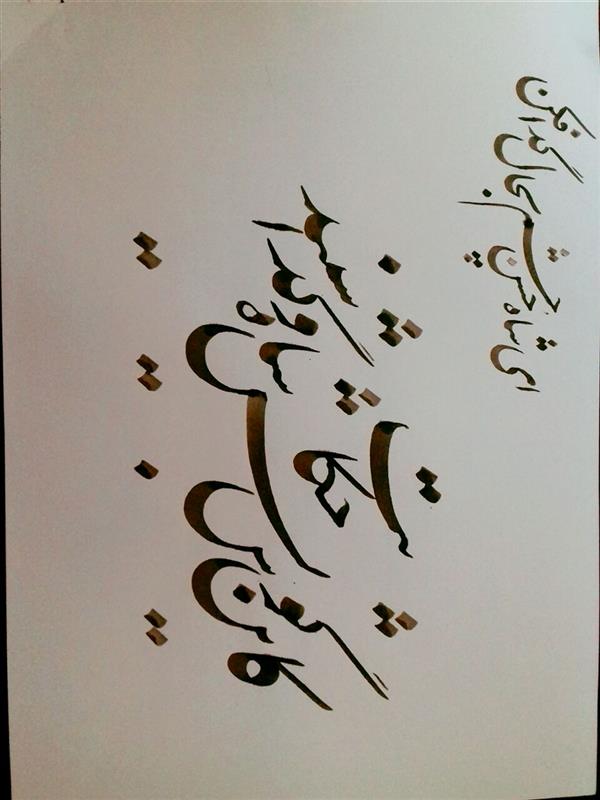 ای شاه حسن چشم بحال گدا فکن
کاین گوش بس حکایت شاه و گدا شنید